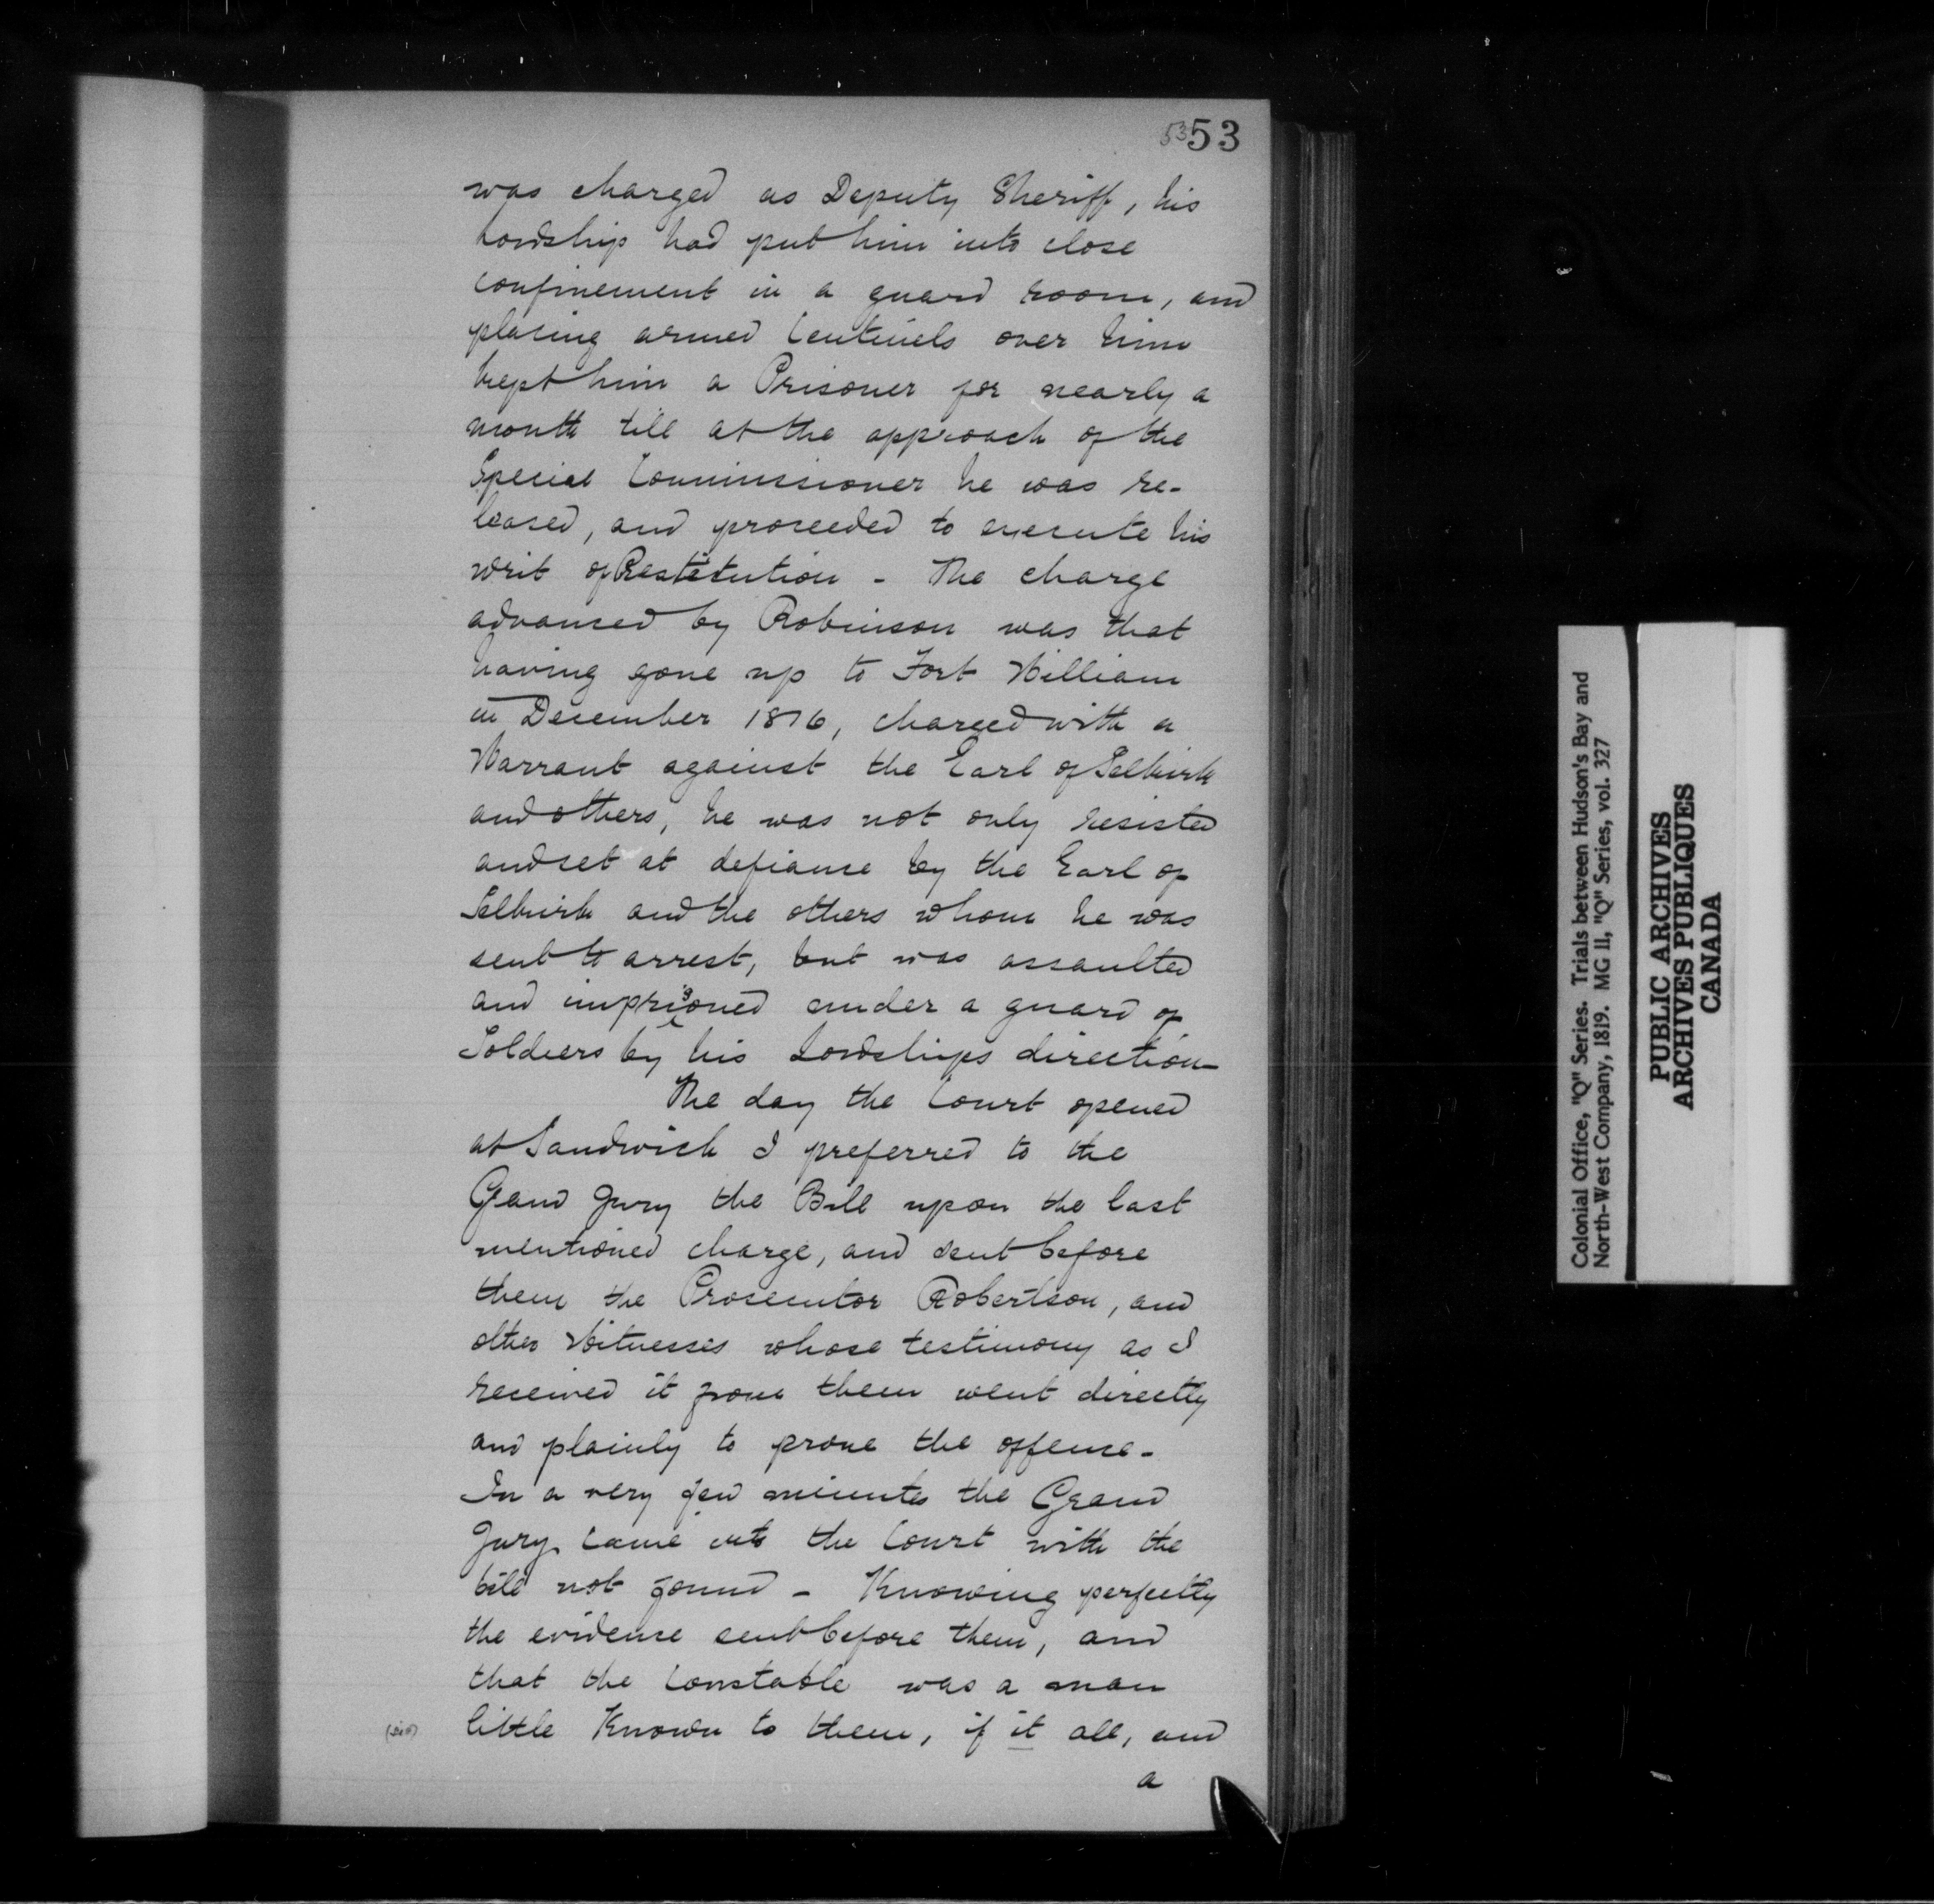 53 53
was charged as Deputy Sheriff, his
Lordship had put him into close
confinement in a guard room, and
placing armed Centinels over him
kept him a Prisoner for nearly a
month till at the approach of the
Special Commissioner he was re-
leased, and proceeded to execute his
writ of Restitution - The charge
advanced by Robinson was that
having gone up to Fort William
in December 1816, charged with a
Warrant against the Earl of Selkirk
and others, he was not only resisted
and set at defiance by the Earl of
Selkirk and the others whom he was
sent to arrest, but was assaulted
and imprisoned under a guard of
Soldiers by his Lordships direction -
The day the Court opened
at Sandwich I preferred to the
Grand Jury the Bill upon the last
mentioned charge, and sent before
them the Prosecutor Robertson, and
other Witnesses whose testimony as I
received it from them went directly
and plainly to prove the offence -
In a very few minutes the Grand
Jury came into the Court with the
bill not found - Knowing perfectly
the evidence sent before them, and
that the Constable was a man
(sic) little known to them, if it all, and
a
Colonial Office, "Q" Series. Trials between Hudson's Bay and
North-West Company, 1819. MG 11, "Q" Series, vol. 327
PUBLIC ARCHIVES
ARCHIVES PUBLIQUES
CANADA